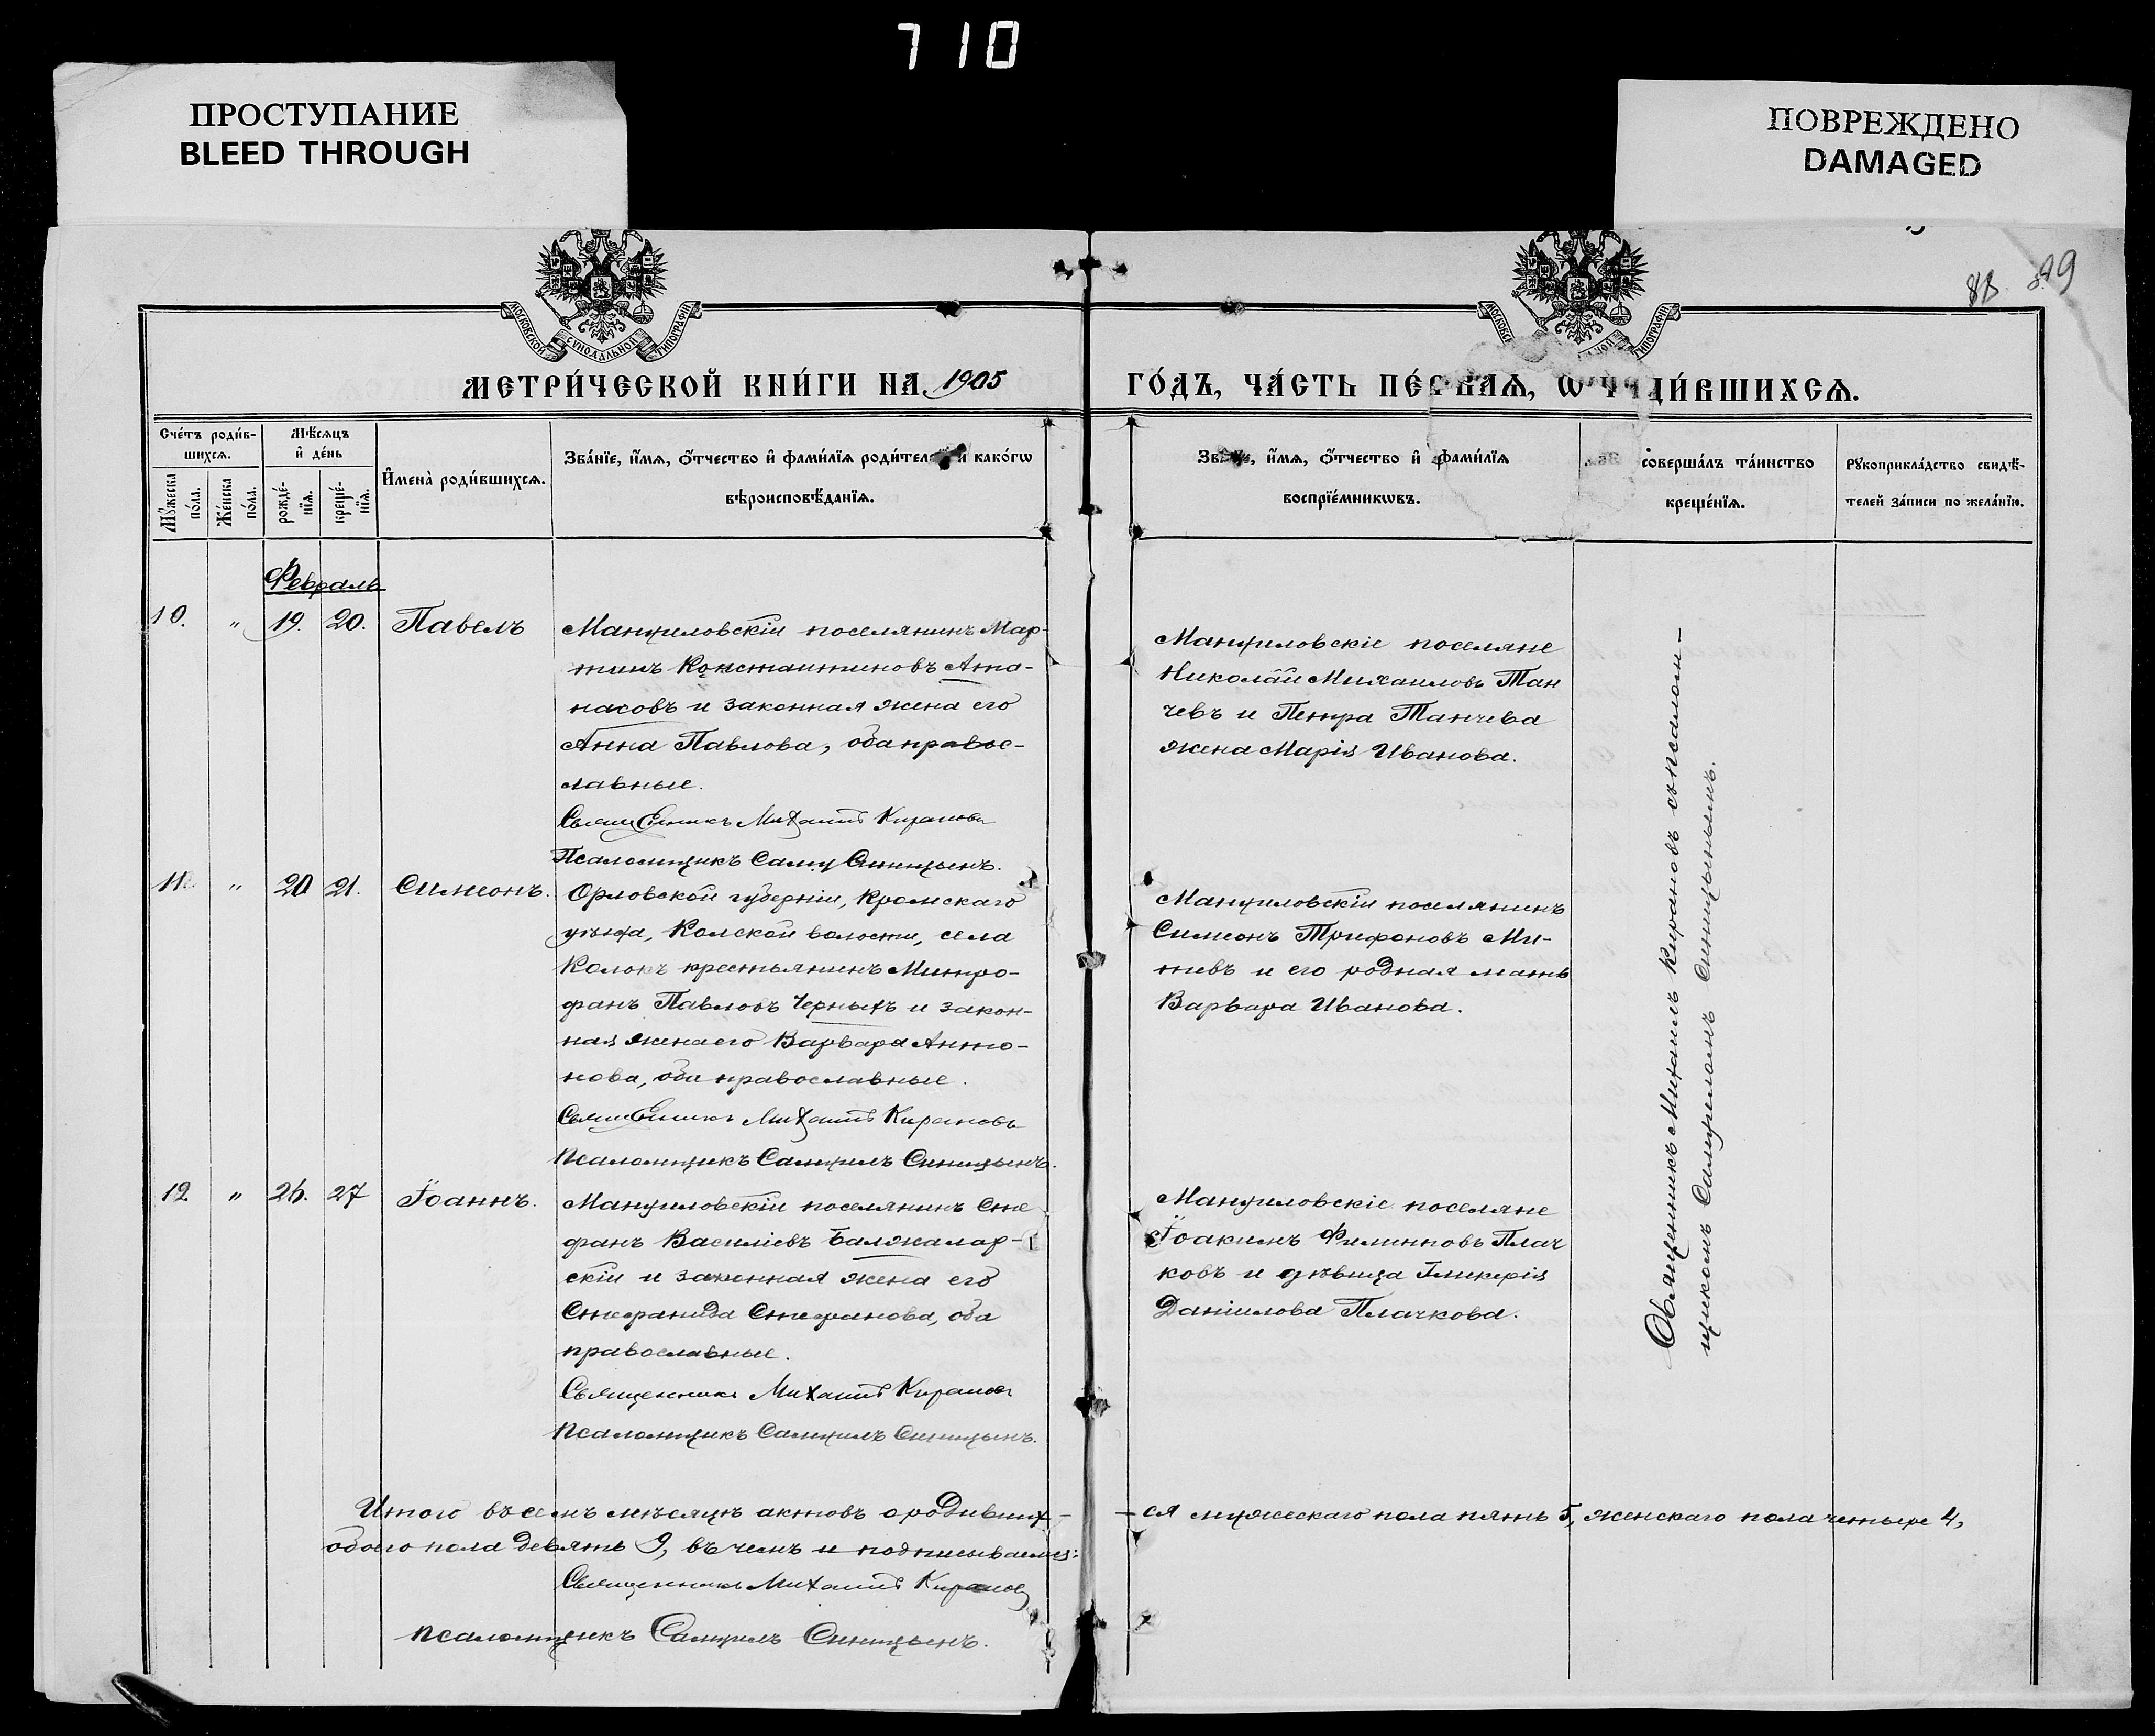 710
ПРОСТУПАНИЕ
BLEED THROUGH
ПОВРЕЖДЕНО
DAMAGED
МОСКОВСКОЙ СѴНОДАЛЬНОЙ ТИПОГРАФІИ
89
МЕТРИ́ЧЕСКОЙ КНИ́ГИ НА 1905
ГО́ДЪ, ЧА́СТЬ ПЕ́РВАѦ, Ѡ РОДИ́ВШИХСѦ.
Сче́тъ роди́в-
шихсѧ.
Му́жеска
по́ла.
Же́нска
по́ла.
Мѣ́сѧцъ
и҆ де́нь
рожде́-
нїѧ.
креще́-
нїѧ.
И҆мена̀ роди́вшихсѧ.
Зва́нїе, и҆́мѧ, ѻ҆́тчество и҆ фами́лїѧ роди́телей и҆ како́гѡ
вѣроисповѣ́данїѧ.
Зва́нїе, и҆́мѧ, ѻ҆́тчество и҆ фами́лїѧ
воспрїе́мникѡвъ.
соверша́лъ та́инство
креще́нїѧ.
Рꙋкоприкла́дство свидѣ́-
телей за́писи по жела́нїю.
Февраль
10. " 19. 20. Павелъ
Мануиловскій поселянинъ Мар-
тинъ Константиновъ Ата-
насовъ и законная жена его
Анна Павлова, оба правос-
лавные.
Священникъ Михаилъ Кирановъ
Псаломщикъ Саму Синицынъ.
Мануиловскіе поселяне
Николай Михаиловъ Тан
чевъ и Петра Танчева
жена Марія Иванова.
11. " 20 21. Симеонъ.
Орловской губерніи, Кромскаго
уѣзда, Колской волости, села
Колокъ крестьянинъ Митро-
фанъ Павловъ Черныхъ и закон-
ная жена его Варвара Анто-
нова, оба православные.
Священникъ Михаилъ Кирановъ
Псаломщикъ Самуилъ Синицынъ.
Мануиловскій поселянинъ
Симеонъ Трифоновъ Ми-
тевъ и его родная мать
Варвара Иванова.
12 " 26. 27 Іоаннъ.
Мануиловскій поселянинъ Сте
фанъ Василіевъ Балжалар-
скій и законная жена его
Стефанида Стефанова, оба
православные.
Священникъ Михаилъ Кирановъ
Псаломщикъ Самуилъ Синицынъ.
Мануиловскіе поселяне
Іоакимъ Филипповъ Плач
ковъ и дѣвица Гликерія
Даніилова Плачкова.
Священникъ Михаилъ Кирановъ съ псалом-
щикомъ Самуиломъ Синицынымъ.
Итого въ семъ мѣсяцѣ актовъ о родивших-
-ся мужескаго пола пять 5, женскаго пола четыре 4,
обоего пола девять 9, въ чемъ и подписываемся:
Священникъ Михаилъ Кирановъ
псаломщикъ Самуилъ Синицынъ.